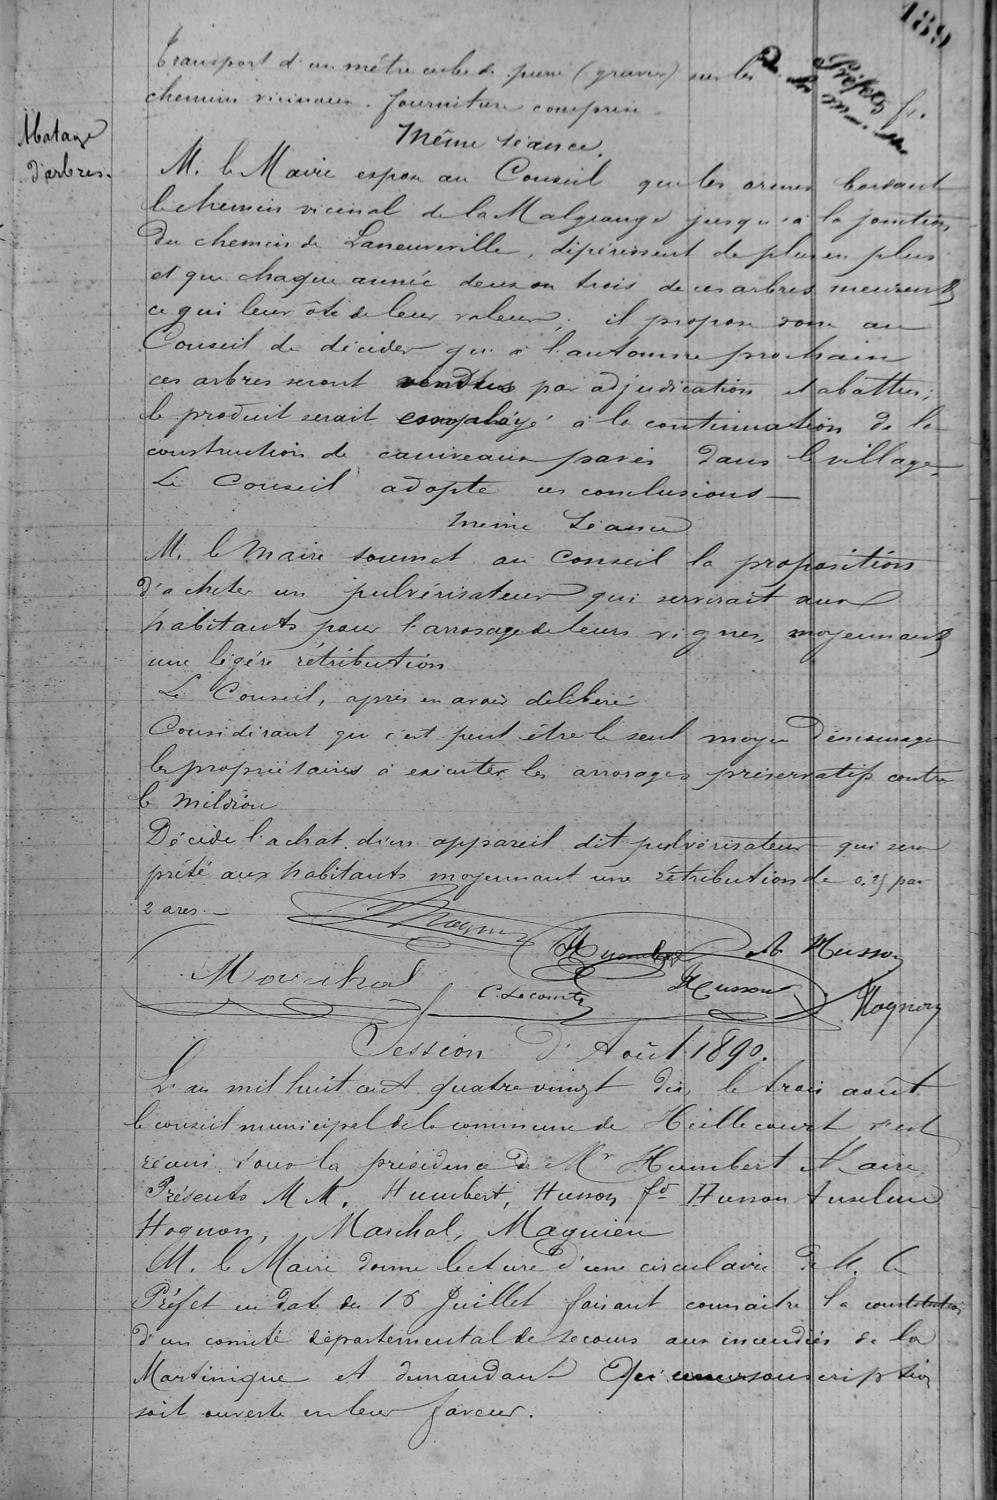 189
Transport d'un mètre cube de pierre (gravier) sur les
chemins vicinaux. fourniture comprise fr.
Même séance.
Abatage
d'arbres.
M. le Maire expose au Conseil que les ormes bordant
le chemin vicinal de la Malgrange jusqu'à la jonction
du chemin de Laneuveville, dépérissent de plus en plus
et que chaque année deux ou trois de ces arbres meurent
ce qui leur ôte de leur valeur, il propose donc au
Conseil de décider qu'à l'automne prochain
ces arbres seront vendus par adjudication et abattus;
le produit serait employé à la continuation de la
construction de caniveaux pavés dans le village
Le Conseil adopte ces conclusions —
même séance
M. le Maire soumet au Conseil la proposition
d'acheter un pulvérisateur qui servirait aux
habitants pour l'arrosage de leurs vignes, moyennant
une légère rétribution
Le Conseil, après en avoir délibéré
Considérant que c'est peut être le seul moyen d'encourager
les propriétaires à exécuter les arrosages préservatifs contre
le mildiou
Décide l'achat d'un appareil dit pulvérisateur qui sera
prêté aux habitants moyennant une rétribution de 0.25 par
2 ares. —
Humbert A Husson
Marchal C. Lecomte Husson Hognon
Session d'Août 1890.
L'an mil huit cent quatre vingt dix, le trois août
le conseil municipal de la commune de Heillecourt s'est
réuni sous la présidence de Mr Humbert Maire,
Présents MM. Humbert, Husson fd Husson Anselme
Hognon, Marchal, Magnien
M. le Maire donne lecture d'une circulaire de M. le
Préfet en date du 16 Juillet faisant connaitre la constitution
d'un comité départemental de secours aux incendiés de la
Martinique et demandant qu'une souscription
soit ouverte en leur faveur.